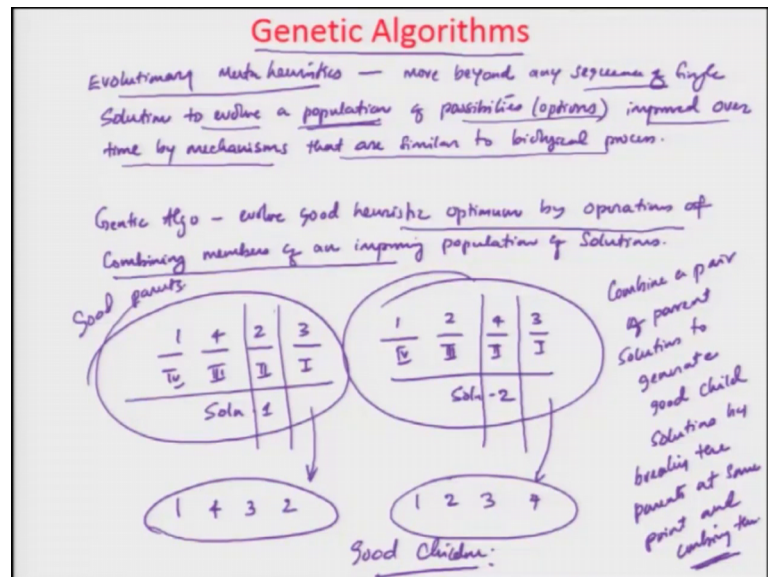 Genetic Algorithms
Evolutionary Meta heuristics — move beyond any sequence of Single
Solution to evolve a population of possibilities (options) improved over
time by mechanisms that are similar to biological process.
Gentic Algo – evolve good heuristic optimum by operations of
Combining members of an improving population of Solutions.
Good parents
1 4 2 3
IV III II I
Soln 1
1 2 4 3
IV III II I
Soln - 2
1 4 3 2
1 2 3 4
Good Children:
Combine a pair
of parent
Solution to
generate
good child
Solutions by
breaking the
parents at some
point and